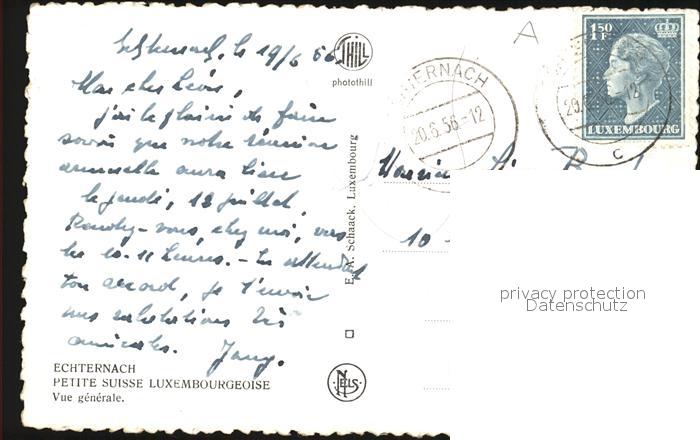 Echternach, le 19/6 56
Mon cher Léon,
j'ai le plaisir de faire
savoir que notre réunion
annuelle aura lieu
le jeudi, 12 juillet.
Rendez-vous, chez moi, vers
les 10-11 heures. - En attendant
ton accord, je t'envoie
mes salutations très
amicales. Jany.
ECHTERNACH
PETITE SUISSE LUXEMBOURGEOISE
Vue générale.
THILL
photothill
E. A. Schaack, Luxembourg
NELS
ECHTERNACH
20.6.56.-12
1.50
1 F
LUXEMBOURG
20.
-12
C
A
Monsieur
10 -
privacy protection
Datenschutz